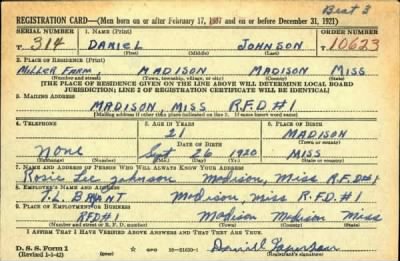 Beat 3
REGISTRATION CARD—(Men born on or after February 17, 1897 and on or before December 31, 1921)
SERIAL NUMBER 1. NAME (Print) ORDER NUMBER
T 314 DANIEL JOHNSON T 10623
(First) (Middle) (Last)
2. PLACE OF RESIDENCE (Print)
MILLER FARM, MADISON MADISON MISS
(Number and street) (Town, township, village, or city) (County) (State)
[THE PLACE OF RESIDENCE GIVEN ON THE LINE ABOVE WILL DETERMINE LOCAL BOARD
JURISDICTION; LINE 2 OF REGISTRATION CERTIFICATE WILL BE IDENTICAL]
3. MAILING ADDRESS
MADISON, MISS R.F.D #1
[Mailing address if other than place indicated on line 2. If same insert word same]
4. TELEPHONE 5. AGE IN YEARS 6. PLACE OF BIRTH
21 MADISON
DATE OF BIRTH (Town or county)
None Sept 26 1920 MISS
(Exchange) (Number) (Mo.) (Day) (Yr.) (State or country)
7. NAME AND ADDRESS OF PERSON WHO WILL ALWAYS KNOW YOUR ADDRESS
Rosie Lee Johnson Madison, Miss R.F.D #1
8. EMPLOYER'S NAME AND ADDRESS
Madison, Miss R.F.D. #1
9. PLACE OF EMPLOYMENT OR BUSINESS
RFD#1 Madison Madison Miss
(Number and street or R. F. D. number) (Town) (County) (State)
I AFFIRM THAT I HAVE VERIFIED ABOVE ANSWERS AND THAT THEY ARE TRUE.
D. S. S. Form 1
(Revised 1-1-42) GPO 16—21630-1
(Registrant's signature)